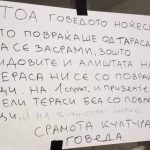 ТОА ГОВЕДОТО НОЌЕСКА
ШТО ПОВРАЌАШЕ ОД ТАРАСА
ДА СЕ ЗАСРАМИ, ЗОШТО
ЅИДОВИТЕ И АЛИШТАТА НА
ТЕРАСА НИ СЕ СО ПОВРА
ЦИ. НА 1 спрат, И ПРИЗЕМЈЕ
ТЕРАСИ БЕА СО ПОВРА
И НА
СРАМОТА КУЛТУРА
ГОВЕДА.